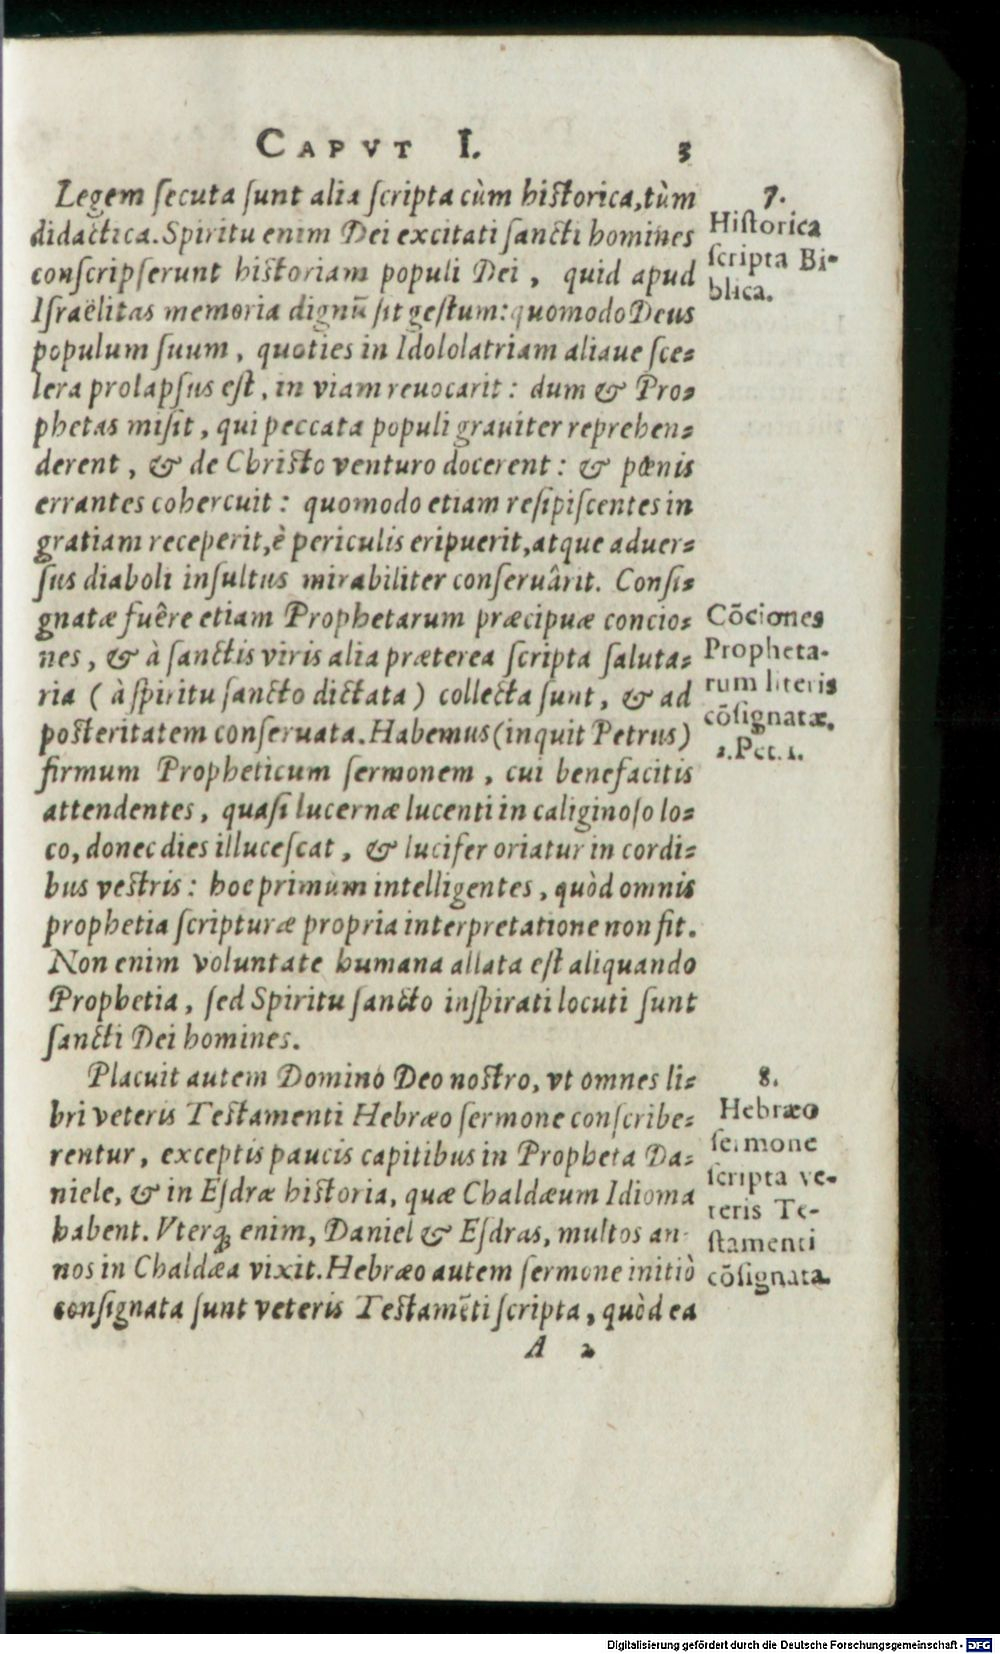 CAPVT I. 3
Legem secuta sunt alia scripta cùm historica, tùm
didactica. Spiritu enim Dei excitati sancti homines
conscripserunt historiam populi Dei, quid apud
Israëlitas memoria dignũ sit gestum: quomodo Deus
populum suum, quoties in Idololatriam aliaue sce-
lera prolapsus est, in viam reuocarit: dum & Pro-
phetas misit, qui peccata populi grauiter reprehen-
derent, & de Christo venturo docerent: & pœnis
errantes cohercuit: quomodo etiam resipiscentes in
gratiam receperit, è periculis eripuerit, atque aduer-
sus diaboli insultus mirabiliter conseruârit. Consi-
gnatæ fuêre etiam Prophetarum præcipuæ concio-
nes, & à sanctis viris alia præterea scripta saluta-
ria (à spiritu sancto dictata) collecta sunt, & ad
posteritatem conseruata. Habemus (inquit Petrus)
firmum Propheticum sermonem, cui benefacitis
attendentes, quasi lucernæ lucenti in caliginoso lo-
co, donec dies illucescat, & lucifer oriatur in cordi-
bus vestris: hoc primùm intelligentes, quòd omnis
prophetia scripturæ propria interpretatione non fit.
Non enim voluntate humana allata est aliquando
Prophetia, sed Spiritu sancto inspirati locuti sunt
sancti Dei homines.
Placuit autem Domino Deo nostro, vt omnes li-
bri veteris Testamenti Hebræo sermone conscribe-
rentur, exceptis paucis capitibus in Propheta Da-
niele, & in Esdræ historia, quæ Chaldæum Idioma
habent. Vterq; enim, Daniel & Esdras, multos an-
nos in Chaldæa vixit. Hebræo autem sermone initiò
consignata sunt veteris Testamẽti scripta, quòd ea
A 2
7.
Historica
scripta Bi-
blica.
Cõciones
Propheta-
rum literis
cõsignatæ.
2. Pet. 1.
8.
Hebræo
sermone
scripta ve-
teris Te-
stamenti
cõsignata.
Digitalisierung gefördert durch die Deutsche Forschungsgemeinschaft - DFG